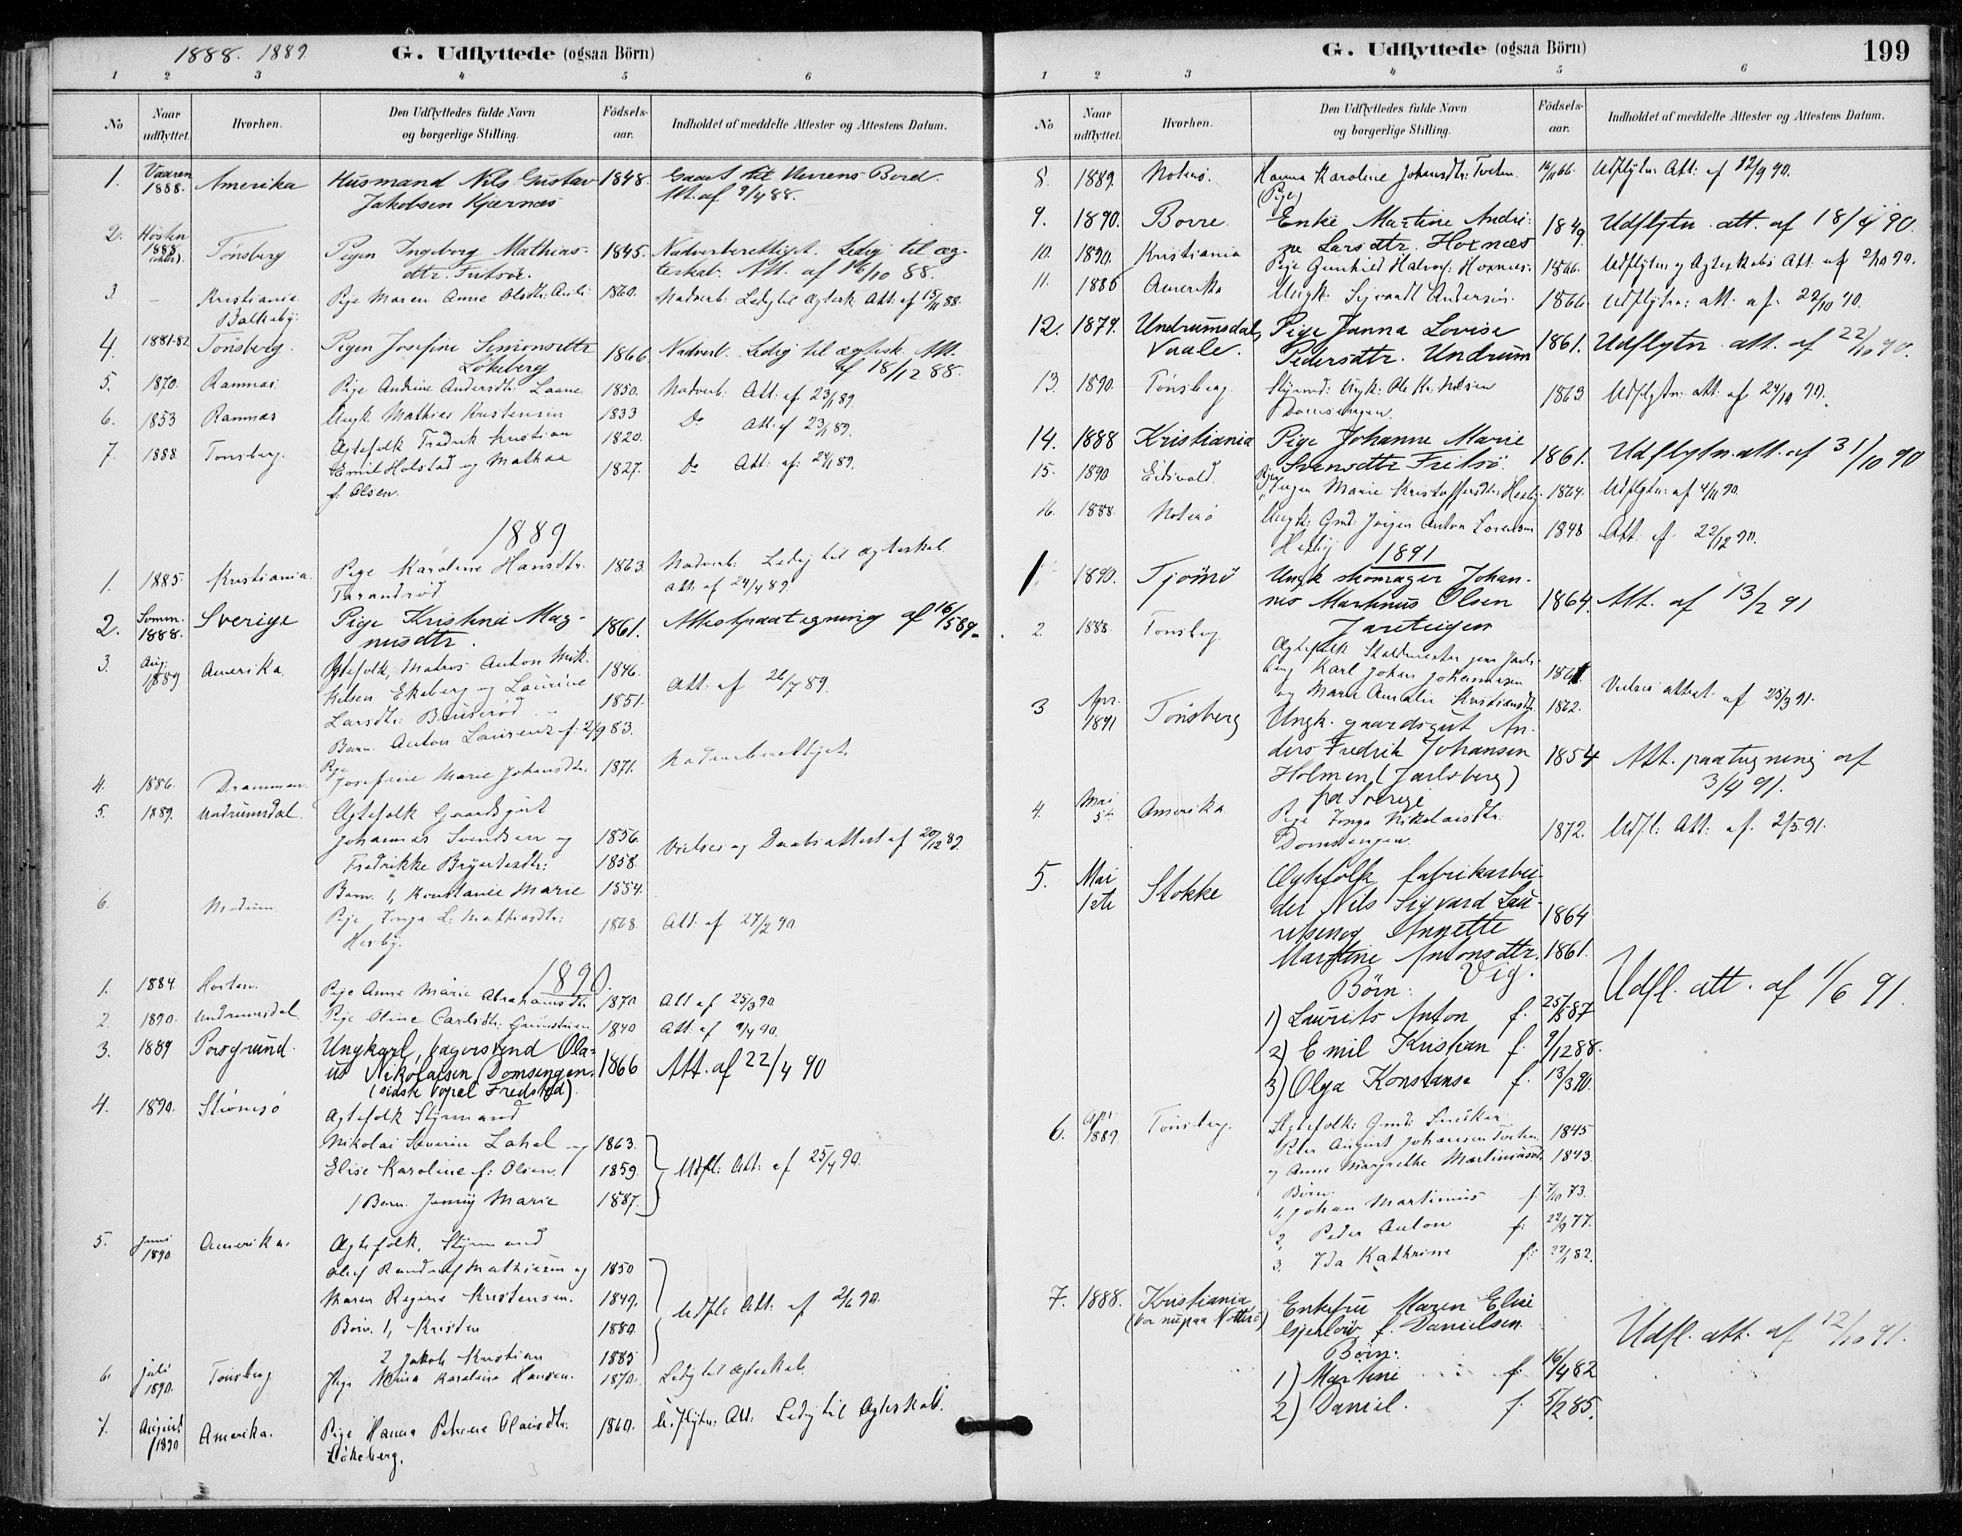 1888. 1889
G. Udflyttede (ogsaa Börn)
1 2 3 4 5 6
No
Naar udflyttet.
Hvorhen.
Den Udflyttedes fulde Navn og borgerlige Stilling.
Födsels-aar.
Indholdet af meddelte Attester og Attestens Datum.
1. Vaaren 1888. Amerika Husmand Nils Gustav 1848. Gaaet til Herrens Bord.
Jakobsen Kjærnæs Att. af 9/4 88.
2. Høsten 1888 Tønsberg Pigen Ingeborg Mathias- 1845. Nadverberettiget. Ledig til æg-
dtr. Fritsøe. teskab. Att. af 16/10 88.
3. – Kristiania Pige Maren Anne Olsdtr. 1860. Nadverb. Ledig til Ægtesk. Att. af 15/11 88.
Balkeby.
4. 1881-82 Tønsberg. Pigen Josefine Simonsdtr 1866 Nadverb. Ledig til ægtesk. Att.
Løkeberg af 18/12 88.
5. 1870. Ramnæs Pige Andrine Andersdtr. Laane 1850. Nadverb. Att. af 23/1 89.
6. 1853 Ramnæs Ungk. Mathias Kristensen 1833 Do Att. af 23/1 89.
7. 1888. Tønsberg. Ægtefolk Fredrik Kristian 1820.
Emil Holstad og Mathea 1827. Do Att. af 24/1 89.
f. Olsen.
1889
1. 1885. Kristiania. Pige Karoline Hansdtr. 1863. Nadverb. Ledig til Ægteskab.
Tarandrød Att. af 24/4 89.
2. Somm. 1888. Sverige Pige Kristina Mag- 1861. Attestpaategning af 16/5 89.
nusdtr.
3. Aug. 1889 Amerika. Ægtefolk, Matros Anton Mik- 1846.
kelsen Ekeberg og Laurine 1851. Att. af 22/7 89.
Larsdtr.
Barn. Anton Laurenz f. 2/9 83.
4. 1886. Drammen. Pige Josefine Marie Johansdtr. 1871. Nadverberettiget.
5. 1889. Undrumsdal. Ægtefolk Gaardsgut
Johannes Svendsen og 1856. Vielses og Daabsattest af 20/12 89.
Fredrikke 1858.
Barn. 1, Konstanse Marie 1884.
6. Modum Pige Inga L. Mathiasdtr. 1868. Att. af 27/2 90.
Hesby.
1890.
1. 1884. Horten. Pige Anne Marie Abrahamsdtr. 1870 Att. af 25/3 90.
2. 1890. Undrumsdal. Pige Oline Carlsdtr. 1840 Att. af 9/4 90.
3. 1889 Porsgrund. Ungkarl, bagersvend Ola-
us Nikolaisen Domsengen. 1866 Att. af 22/4 90
(sidste bopæl Fredstad).
4. 1890. Strømsø Ægtefolk Styrmand
Nikolai Severin Lahel og 1863.
Elise Karoline f. Olsen. 1859. Udfl. Att. af 25/4 90.
1 Barn. Jenny Marie 1887.
5. Juni 1890. Amerika. Ægtefolk, Styrmand
Oluf Mathisen og 1850
Maren Regine Kristensen. 1849. Udfl. Att. af 2/6 90.
Børn. 1, Kristen 1880.
2 Jakob Kristian 1885
6. Juli 1890. Tønsberg Pige Karoline Hansen. 1870. Ledig til Ægteskab.
7. August 1890 Amerika. Pige Hanna Petrine Olaisdtr. 1860. Udflytn. Att. Ledig til Ægteskab.
Løkeberg.
G. Udflyttede (ogsaa Börn)
199
1 2 3 4 5 6
No
Naar udflyttet.
Hvorhen.
Den Udflyttedes fulde Navn og borgerlige Stilling.
Födsels-aar.
Indholdet af meddelte Attester og Attestens Datum.
8. 1889. Noterø. Hanna Karoline Johansdtr. Tveten. 14/11 66. Udflytn. Att. af 12/9 90.
(Pige)
9. 1890. Borre. Enke Martine Andri- 1849 Udflytn. att. af 18/9 90.
ne Larsdtr. Hoxnæs
10. 1890. Kristiania Pige Gunhild Halvors. Hoxnæs. 1866. Udflytn. og Ægteskabs Att. af 2/10 90.
11. 1886 Amerika Ungk. Sigvardt Andersen. 1866. Udflytn. att. af 22/10 90.
12. 1879. Undrumsdal, Pige Janna Lovise 1861. Udflytn. att. af 22/10 90.
Vaale. Pedersdtr. Undrum
13. 1890. Tønsberg Styrmd. Ungk. Ole Kr. Nilsen 1863 Udflytn. att. af 24/10 90.
Domsengen.
14. 1888 Kristiania Pige Johanne Marie 1861. Udflytn. att. af 31/10 90
Svensdtr Fritsø.
15. 1890 Eidsvold. Pige Inger Marie Kristoffersdtr. Hesby. 1864. Udflytn. af 4/11 90.
16. 1888. Noterø Ungk. Gmd. Jørgen Anton Lorensen 1848 Att. af 22/12 90.
Hesby
1891
1 1890. Tjømø Ungk. skomager Johan-
nes Martinus Olsen 1864. Att. af 13/2 91
Jareteigen
2 1888. Tønsberg Ægtefolk Staldmester paa Jarls-
berg Karl Johan Johannesen 1861. Vielses attest af 23/3 91.
og Maria Amalie Kristiansdtr. 1862.
3 Apr. 1891 Tønsberg Ungk. gaardsgut An-
ders Fredrik Johansen 1854 Att. paategning af
Holmen (Jarlsberg) 3/4 91.
fra Sverige
4. Mai Amerika Pige Inga Nikolaisdtr. 1872. Udfl. Att. af 2/5 91.
Domsengen.
5. Mai Stokke Ægtefolk fabrikarbei-
der Nils Sigvard Lau- 1864
ritsen og Annette
Martine Antonsdtr. 1861.
Vig.
Børn:
1) Laurits Anton f. 25/3 87
2) Emil Kristian f. 9/12 88.
3) Olga Konstanse f. 13/3 90.
Udfl. att. af 1/6 91.
6. 1889 Tønsberg. Ægtefolk: Gmd. Snedker
Peter August Johansen Tveten 1845
og Anne Margrethe Martinusdtr. 1843.
Børn.
1, Johan Martinius f. 7/10 73.
2, Peder Anton f. 22/9 77.
3. Ida Kathrine f. 22/1 82.
7. 1888. Kristiania Enkefru Maren Elise
(bor nu paa Nøtterø) Gjerløw f. Danielsen.
Børn:
1) Martine f. 16/4 82
2) Daniel. f. 5/2 85.
Udfl. att. af 12/10 91.